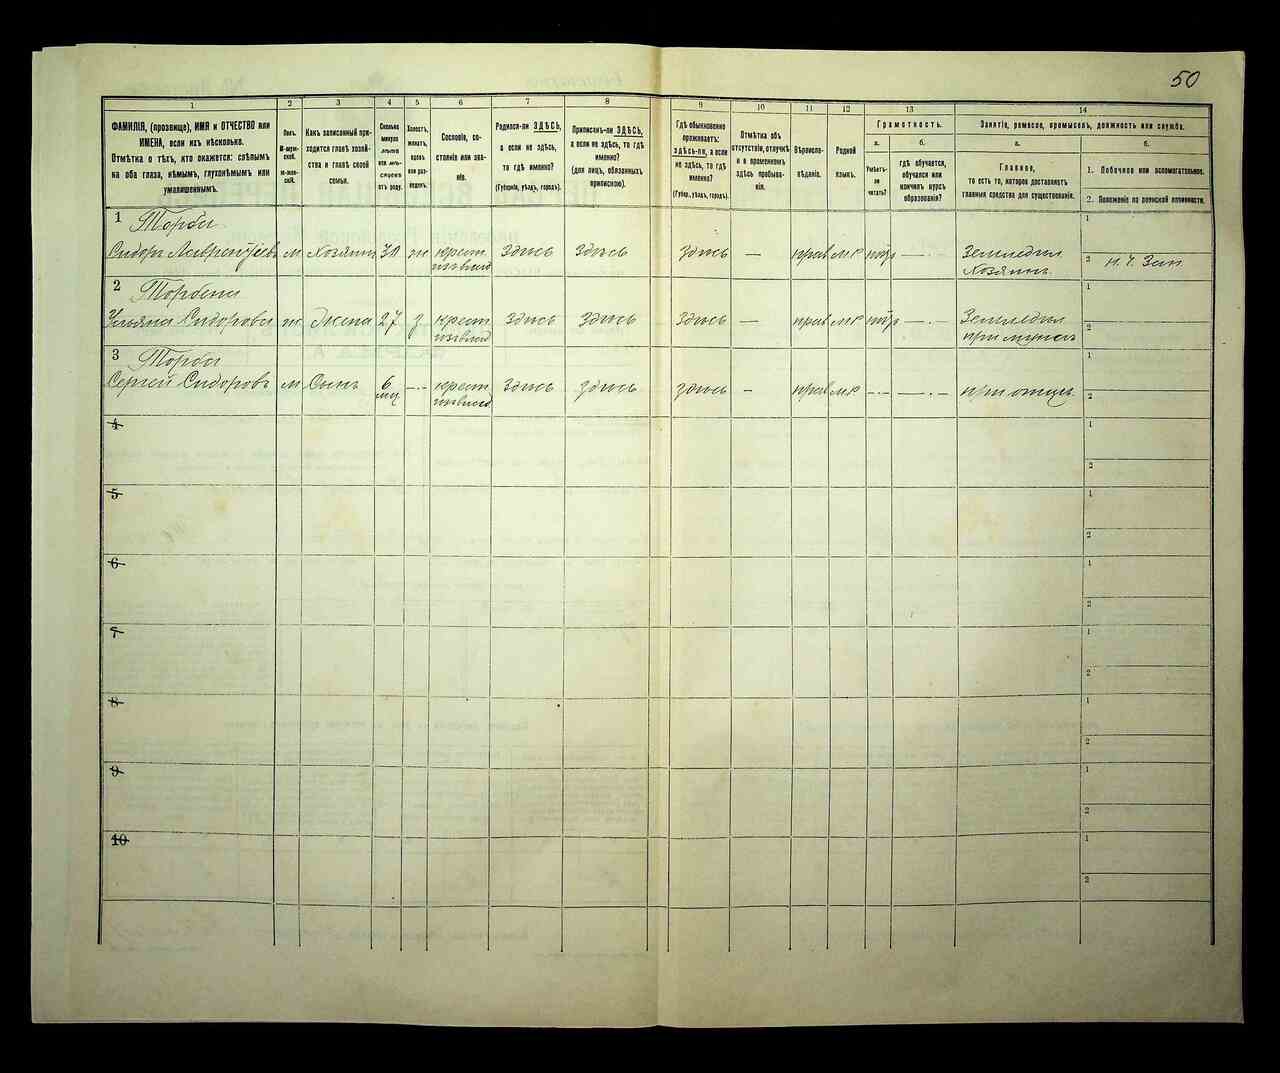 50
1 2 3 4 5 6 7 8 9 10 11 12 13 14
ФАМИЛІЯ, (прозвище), ИМЯ и ОТЧЕСТВО или
ИМЕНА, если ихъ нѣсколько.
Отмѣтка о тѣхъ, кто окажется: слѣпымъ
на оба глаза, нѣмымъ, глухонѣмымъ или
умалишеннымъ.
Полъ.
М-муж-
ской.
Ж-жен-
скій.
Какъ записанный при-
ходится главѣ хозяй-
ства и главѣ своей
семьи.
Сколько
минуло
лѣтъ
или мѣ-
сяцевъ
отъ роду.
Холостъ,
женатъ,
вдовъ
или раз-
веденъ.
Сословіе, со-
стояніе или зва-
ніе.
Родился-ли ЗДѢСЬ,
а если не здѣсь,
то гдѣ именно?
(Губернія, уѣздъ, городъ).
Приписанъ-ли ЗДѢСЬ,
а если не здѣсь, то гдѣ
именно?
(для лицъ, обязанныхъ
припискою).
Гдѣ обыкновенно
проживаетъ:
здѣсь-ли, а если
не здѣсь, то гдѣ
именно?
(Губер., уѣздъ, городъ).
Отмѣтка объ
отсутствіи, отлучкѣ
и о временномъ
здѣсь пребыва-
ніи.
Вѣроиспо-
вѣданіе.
Родной
языкъ.
Грамотность.
а. б.
Умѣетъ-
ли
читать?
гдѣ обучается,
обучался или
кончилъ курсъ
образованія?
Занятіе, ремесло, промыселъ, должность или служба.
а. б.
Главное,
то есть то, которое доставляетъ
главныя средства для существованія.
1. Побочное или вспомогательное.
2. Положеніе по воинской повинности.
1 Торби 1
Сидоръ Лаврентіевъ м Хозяинъ 30 ж крест. Здѣсь Здѣсь Здѣсь — прав мр — Земледѣл. 2 н. ч. Зап
изъ влад Хозяинъ
2 1
Ульяна Сидорова ж Жена 27 з крест. Здѣсь Здѣсь Здѣсь — прав мр — Земледѣл 2
изъ влад при мужѣ
3 Торби 1
Сергѣй Сидоровъ м Сынъ 6 — крест. Здѣсь Здѣсь Здѣсь — прав мр — — при отцѣ 2
мц изъ влад
4 1
2
5 1
2
6 1
2
7 1
2
8 1
2
9 1
2
10 1
2